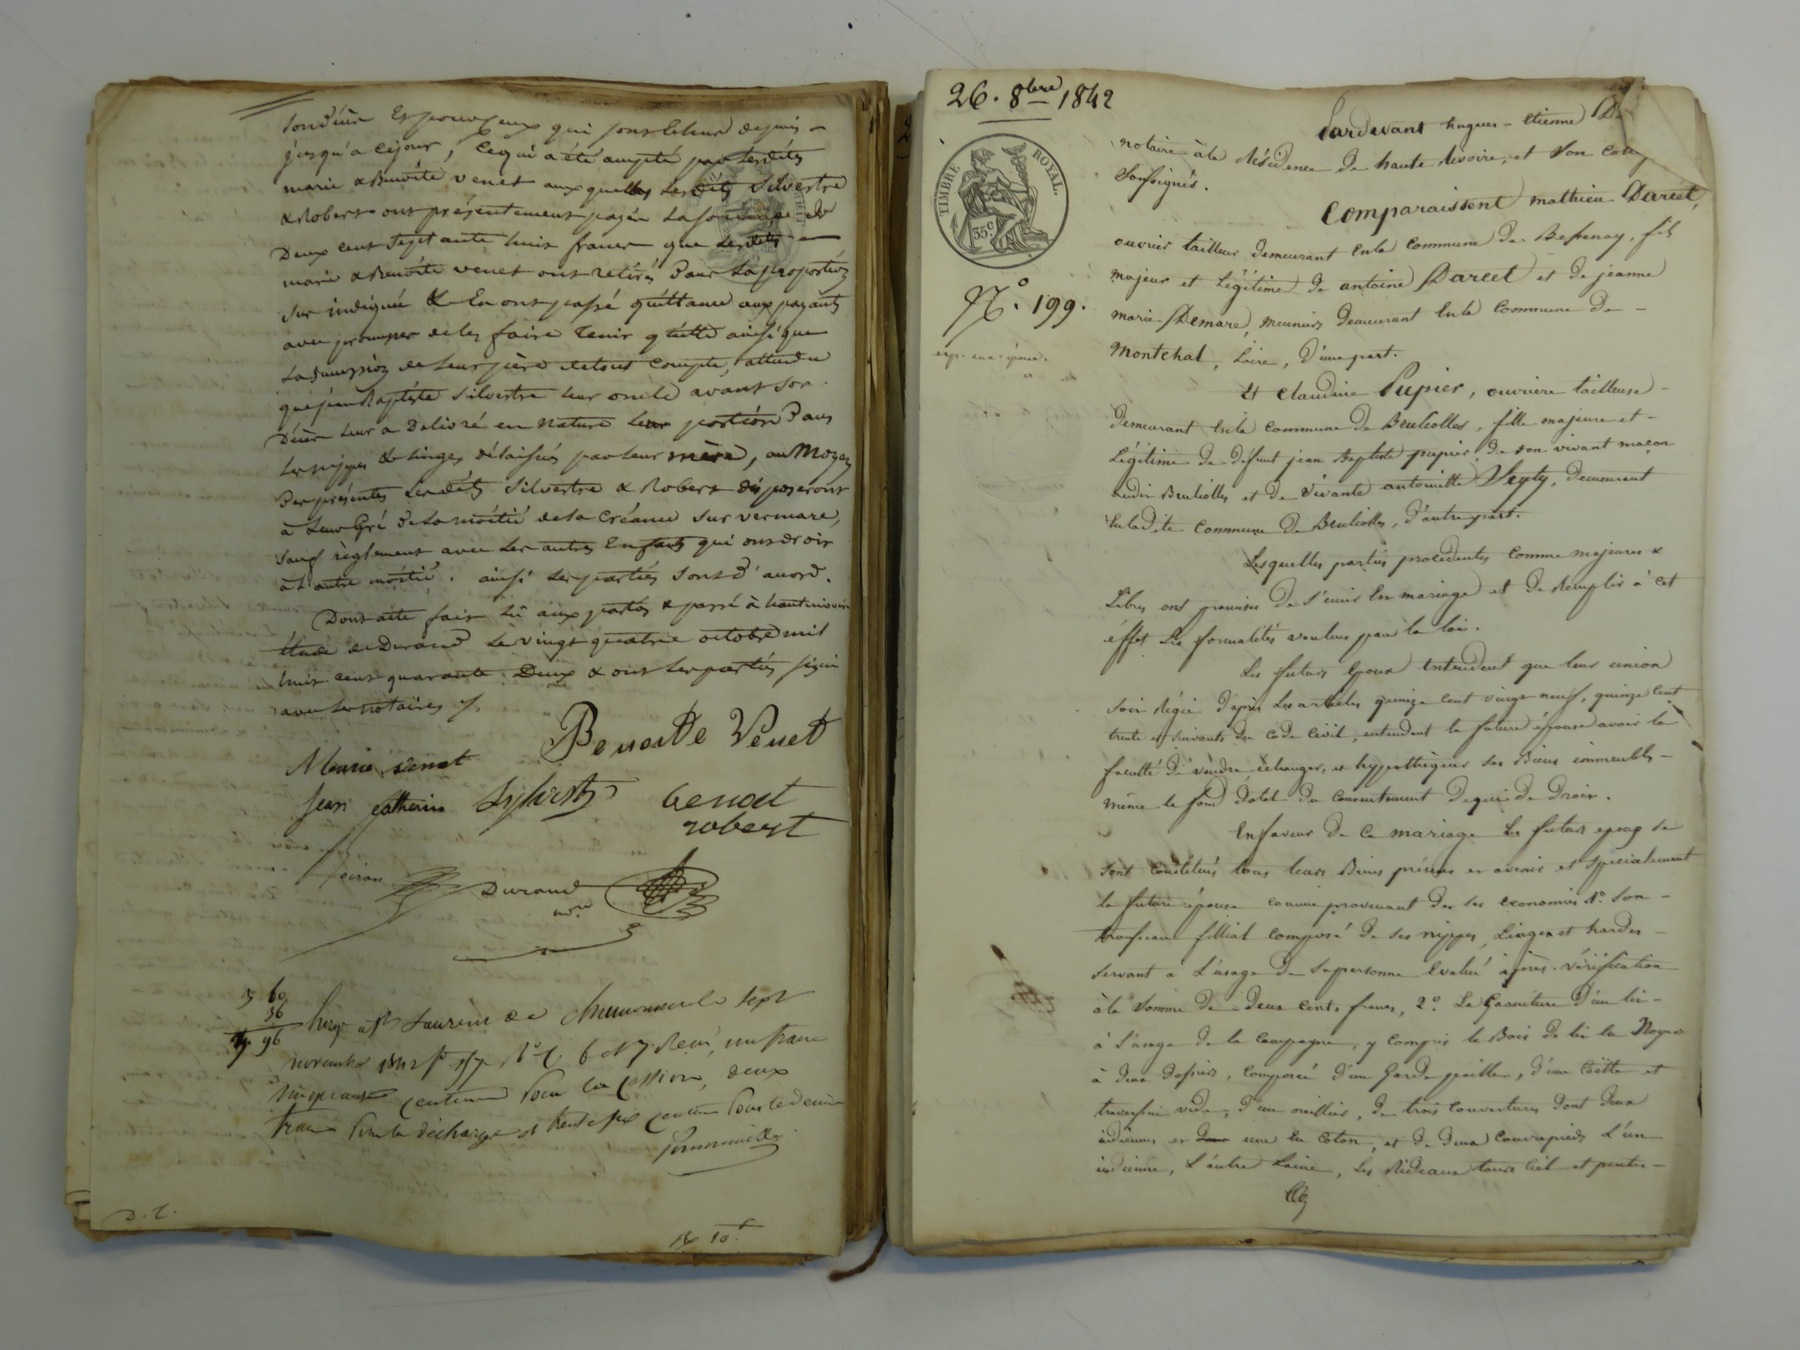 jusqu'a cejour, Cequi a été accepté par lesdites
marie & Benoite venet auxquelles lesdits Silvestre
& Robert ont présentement payée la somme de
Deux cent Septante huit francs que lesdites
marie & Benoite venet ont retirés Pour la proportion
sus indiquée & En ont passé quittance aux payants
avec promesse de les faire tenir quitte ainsi que
la succession de leur père de tout compte, attendu
que jean Baptiste Silvestre leur oncle avant son
Décès leur a Delivré en nature leur portion Dans
les nippes & linges délaissés par leur mère, au Moyen
Des présentes lesdits Silvestre & Robert disposeront
à leur Gré de la moitié de la Créance sur vermare,
sauf règlement avec les autres Enfants qui ont droit
à l'autre moitié. ainsi les parties sont d'accord.
Dont acte fait lu aux parties & passé à hauterivoire
étude de Durand le vingt quatre octobre mil
huit cent quarante Deux & ont les parties signé
avec les notaires
Benoite Venet
Marie venet
Jean catherin Silvestre
benoit
robert
Durand
nre
3 60
36
96
novembre 1842
centimes Pour la Cession, deux
francs Pour la décharge et trente six centimes Pour le decime
26. 8bre 1842
TIMBRE ROYAL.
35c.
N.° 199.
Pardevant hugues-Etienne
notaire à la Résidence de haute Rivoire, et Son
Soussignés.
Comparaissent mathieu Darcet,
ouvrier tailleur demeurant En la Commune de Bessenay, fils
majeur et Légitime de antoine Darcet et de jeanne
marie Demare, meuniers Demeurant En la Commune de
Montchal, Loire, D'une part.
Et Claudine Pupier, ouvriere tailleuse
demeurant En la Commune de Brullioles, fille majeure et
Légitime de défunt jean Baptiste pupier de son vivant maçon
audit Brullioles et de vivante antoinette Depty, Demeurant
En ladite Commune de Brullioles, D'autre part.
Lesquelles parties procédentes Comme majeures &
Libres ont promises De s'unir En mariage et De Remplir à cet
éffet Les formalités voulues par la loi.
Les futurs Epoux Entendent que leur union
soit Régie D'après Les articles quinze cent vingt neuf, quinze cent
trente et suivants du Code Civil, entendent la future épouse avoir la
faculté de vendre échanger, et hyppothèquer ses Biens immeubles
même le fond Dotal du Consentement De qui De Droit.
En faveur De Ce mariage Les futurs epoux se
sont Constitués tous leurs Biens présens et avenir et spécialement
la future épouse comme provenant De ses économies 1°. Son
trousseau fillial composé De ses nippes, Linges et hardes
servant à L'usage De sa personne Evalué après vérification
à la somme de deux Cents francs, 2°. La Garniture D'un lit
à L'usage de la Campagne, y Compris le Bois De lit en Noyer
à deux dossiers, Composée D'un Garde paille, D'une Coëtte et
traversin vide, d'un oreillier, De trois Couvertures Dont Deux
indiennes et une En Coton, et De Deux Couvrepieds L'un
indienne, L'autre Laine, Les Rideaux tours Ciel et pentes